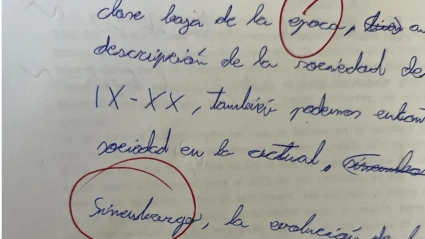 clase baja de la epoca,
descripción de la sociedad de
IX-XX, también podemos
sociedad en la actual,
Sinembargo, la evolución de